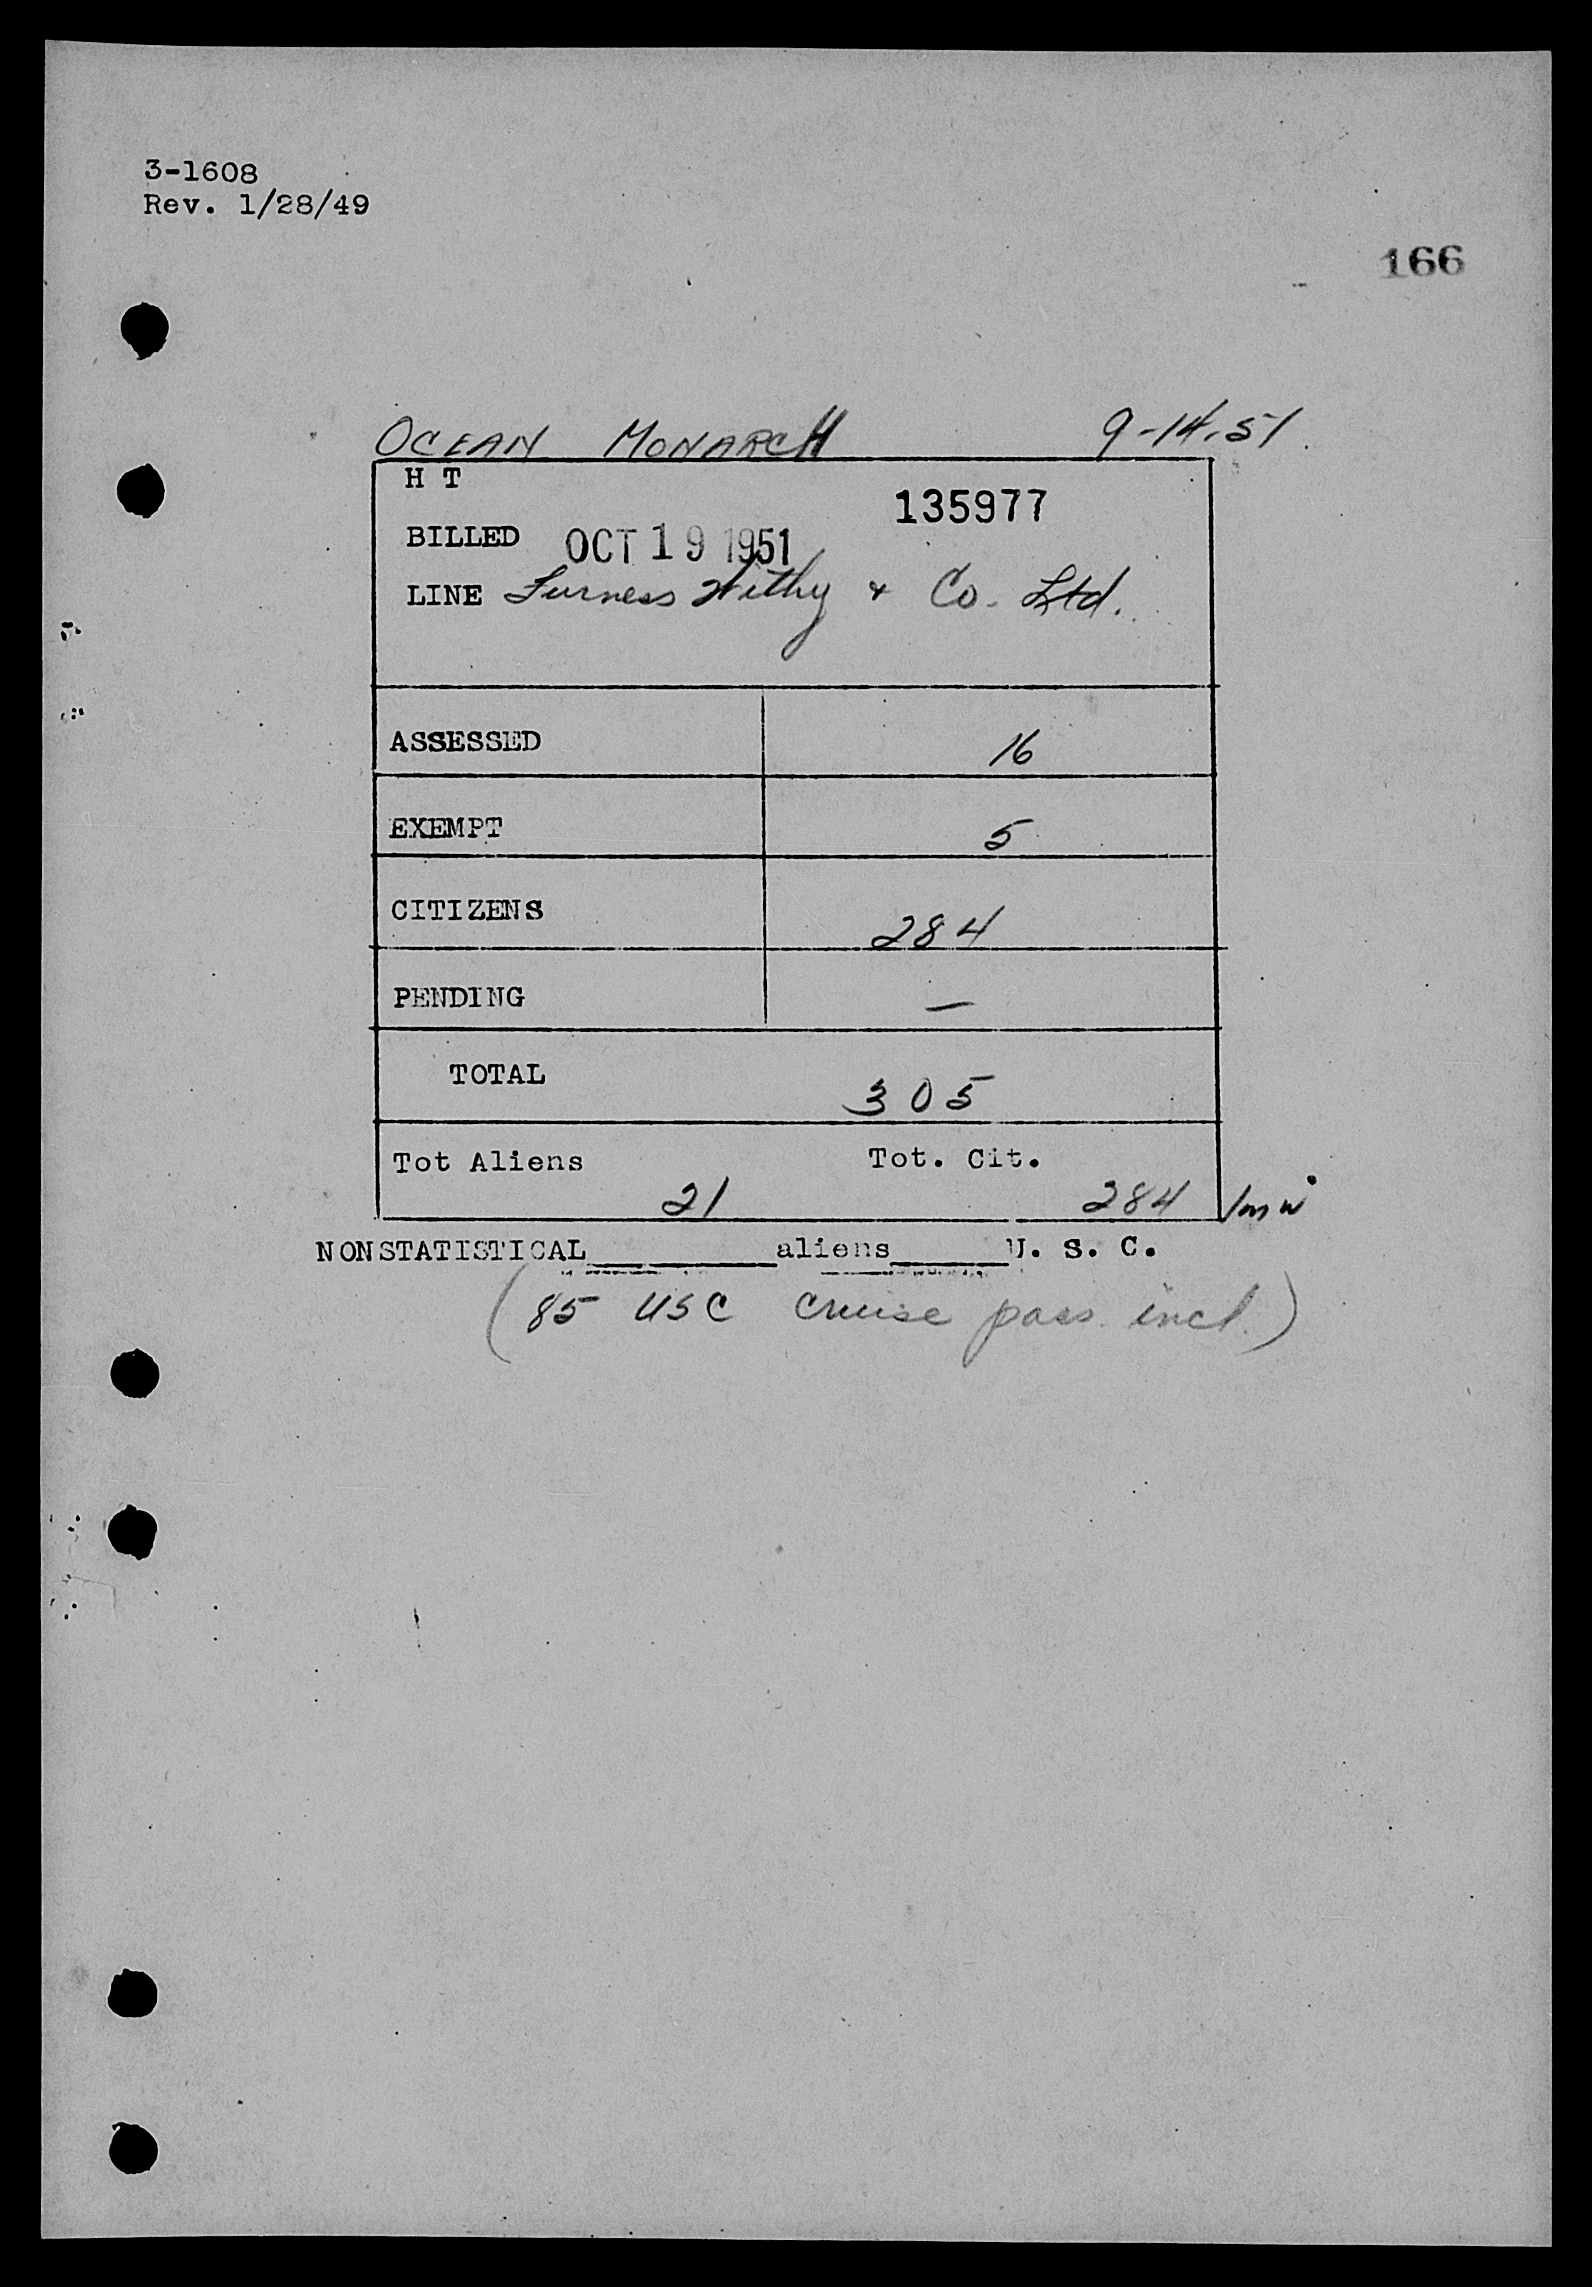 3-1608
Rev. 1/28/49
166
OCEAN MONARCH 9-14-51
H T
135977
BILLED OCT 19 1951
LINE Furness Withy & Co. Ltd.
ASSESSED 16
EXEMPT 5
CITIZENS 284
PENDING —
TOTAL 305
Tot Aliens Tot. Cit.
21 284
NONSTATISTICAL______ aliens______U. S. C.
(85 USC cruise pass. incl.)